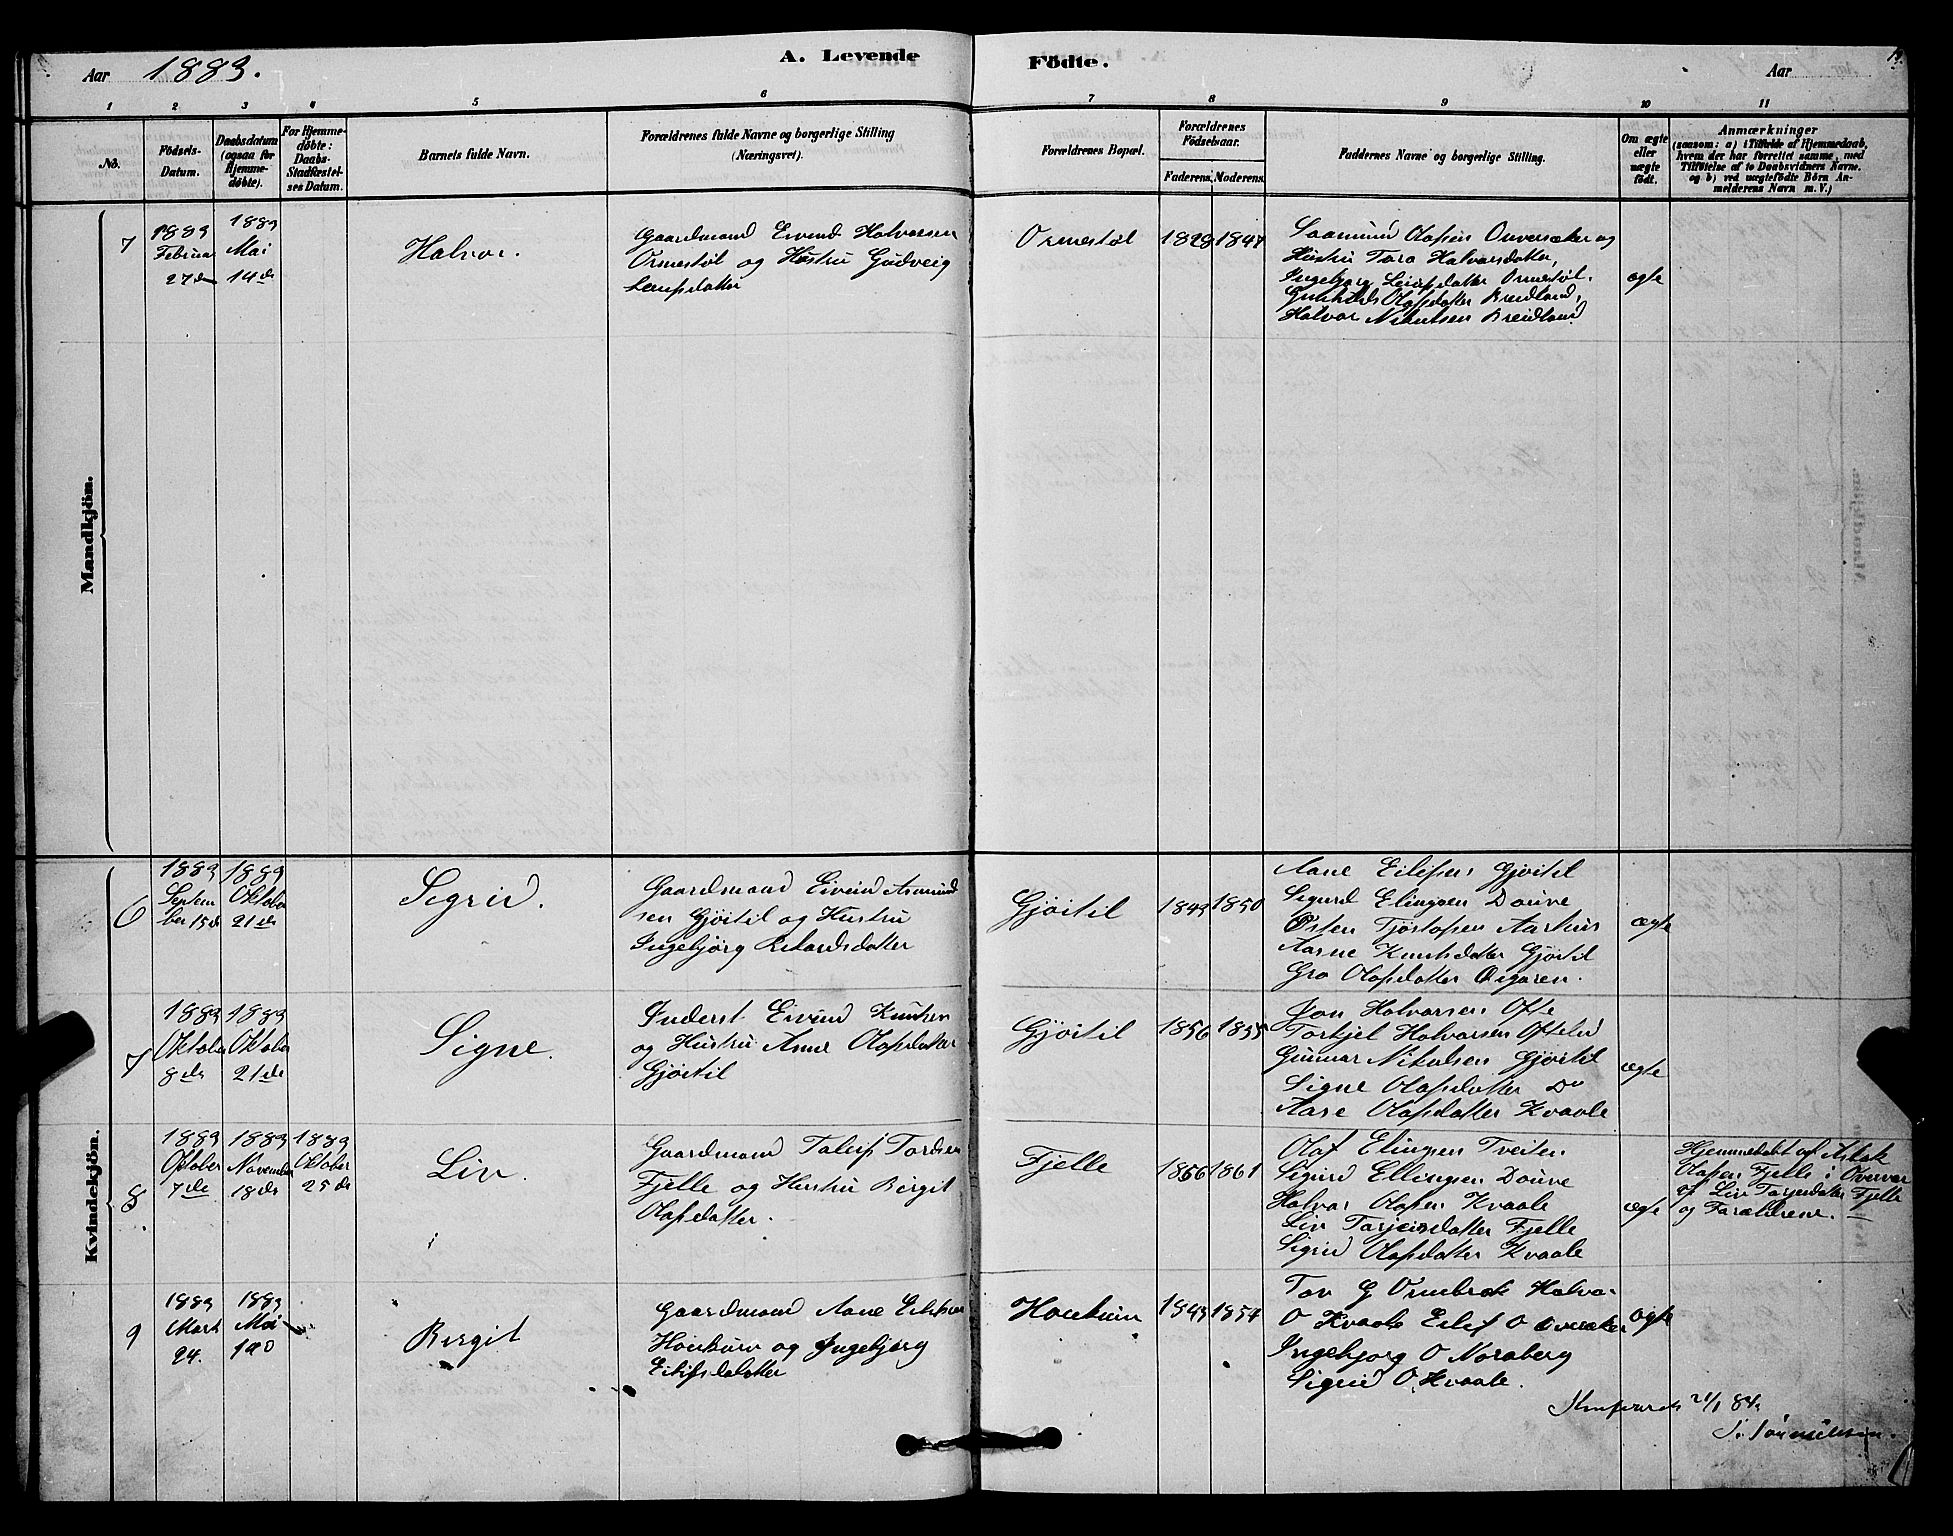 A. Levende Födte.
Aar 1883.
Aar
1 2 3 4 5 6 7 8 9 10 11
No.
Födsels-
Datum.
Daabsdatum
(ogsaa for
Hjemme-
døbte).
For Hjemme-
døbte:
Daabs-
Stadfæstel-
ses Datum.
Barnets fulde Navn.
Forældrenes fulde Navne og borgerlige Stilling
(Næringsvei).
Forældrenes Bopæl.
Forældrenes
Födselsaar.
Faderens. Moderens.
Faddernes Navne og borgerlige Stilling.
Om ægte
eller
uægte
født.
Anmærkninger
(saasom: a) i Tilfælde af Hjemmedaab,
hvem der har forrettet samme, med
Tilføielse af to Daabsvidners Navne.
og b) ved uægtefødte Børn An-
melderens Navn m. V.)
Mandkjön.
7
1883
Februar
27de
1883
Mai
14de
Halvor.
Gaardmand Eivind Halvorsen
Ormestøl og Hustru Gudveig
Leifsdatter
Ormestøl
1828
1847
Saamund Olafsen Overåker og
Hustru Tora Halvorsdatter,
Ingeborg Leifsdatter Ormestøl.
Gunhild Olafsdatter Breidland,
Halvor Nikulsen Breidland
ægte
Kvindekjön.
6
1883
Septem
ber 15de
1883
Oktober
21de
Sigrid.
Gaardmand Eivind Asmund
sen Gjøitil og Hustru
Ingebjørg Rikardsdatter
Gjøitil
1849
1850
Aane Eilefsen Gjøitil
Sigurd Elingsen Douve
Østen Tjøstofsen Aarhus
Aasne Knutsdatter Gjøitil
Gro Olafsdatter Øigaren.
ægte
7
1883
Oktober
8de
1883
Oktober
21de
Signe.
Inderst Eivind Knutsen
og Hustru Anne Olafsdatter
Gjöitil
Gjøitil
1856
1855
Jon Halvorsen Ofte
Torkjel Halvorsen Oftelid
Gunnar Nikulsen Gjøitil
Signe Olafsdatter Do
Aase Olafsdatter Kvaale
ægte
8
1883
Oktober
7de
1883
November
18de
1883
Oktober
25de
Liv.
Gaardmand Taleif Tordsen
Fjelle og Hustru Birgit
Olafsdatter.
Fjelle
1856
1861
Olaf Elingsen Tveiten
Sigurd Ellingsen Douve
Halvor Olafsen Kvaale
Liv Tarjeisdatter Fjelle
Sigrid Olafsdatter Kvaale
ægte
Hjemmedøbt af Aslak
Olafsen Fjelle i Overvær
af Liv Tarjeisdatter Fjelle
og Forældrene.
9
1883
Mart
24.
1883
Mai
Birgit
Gaardmand Aane Eilefsen
og Ingebjørg
Eilifsdatter
1843
1854
Tov G Ormbrek Halvor
O Kvaale Eilef O Overåker
Ingebjorg O Noraberg
Sigrid O. Kvaale.
ægte